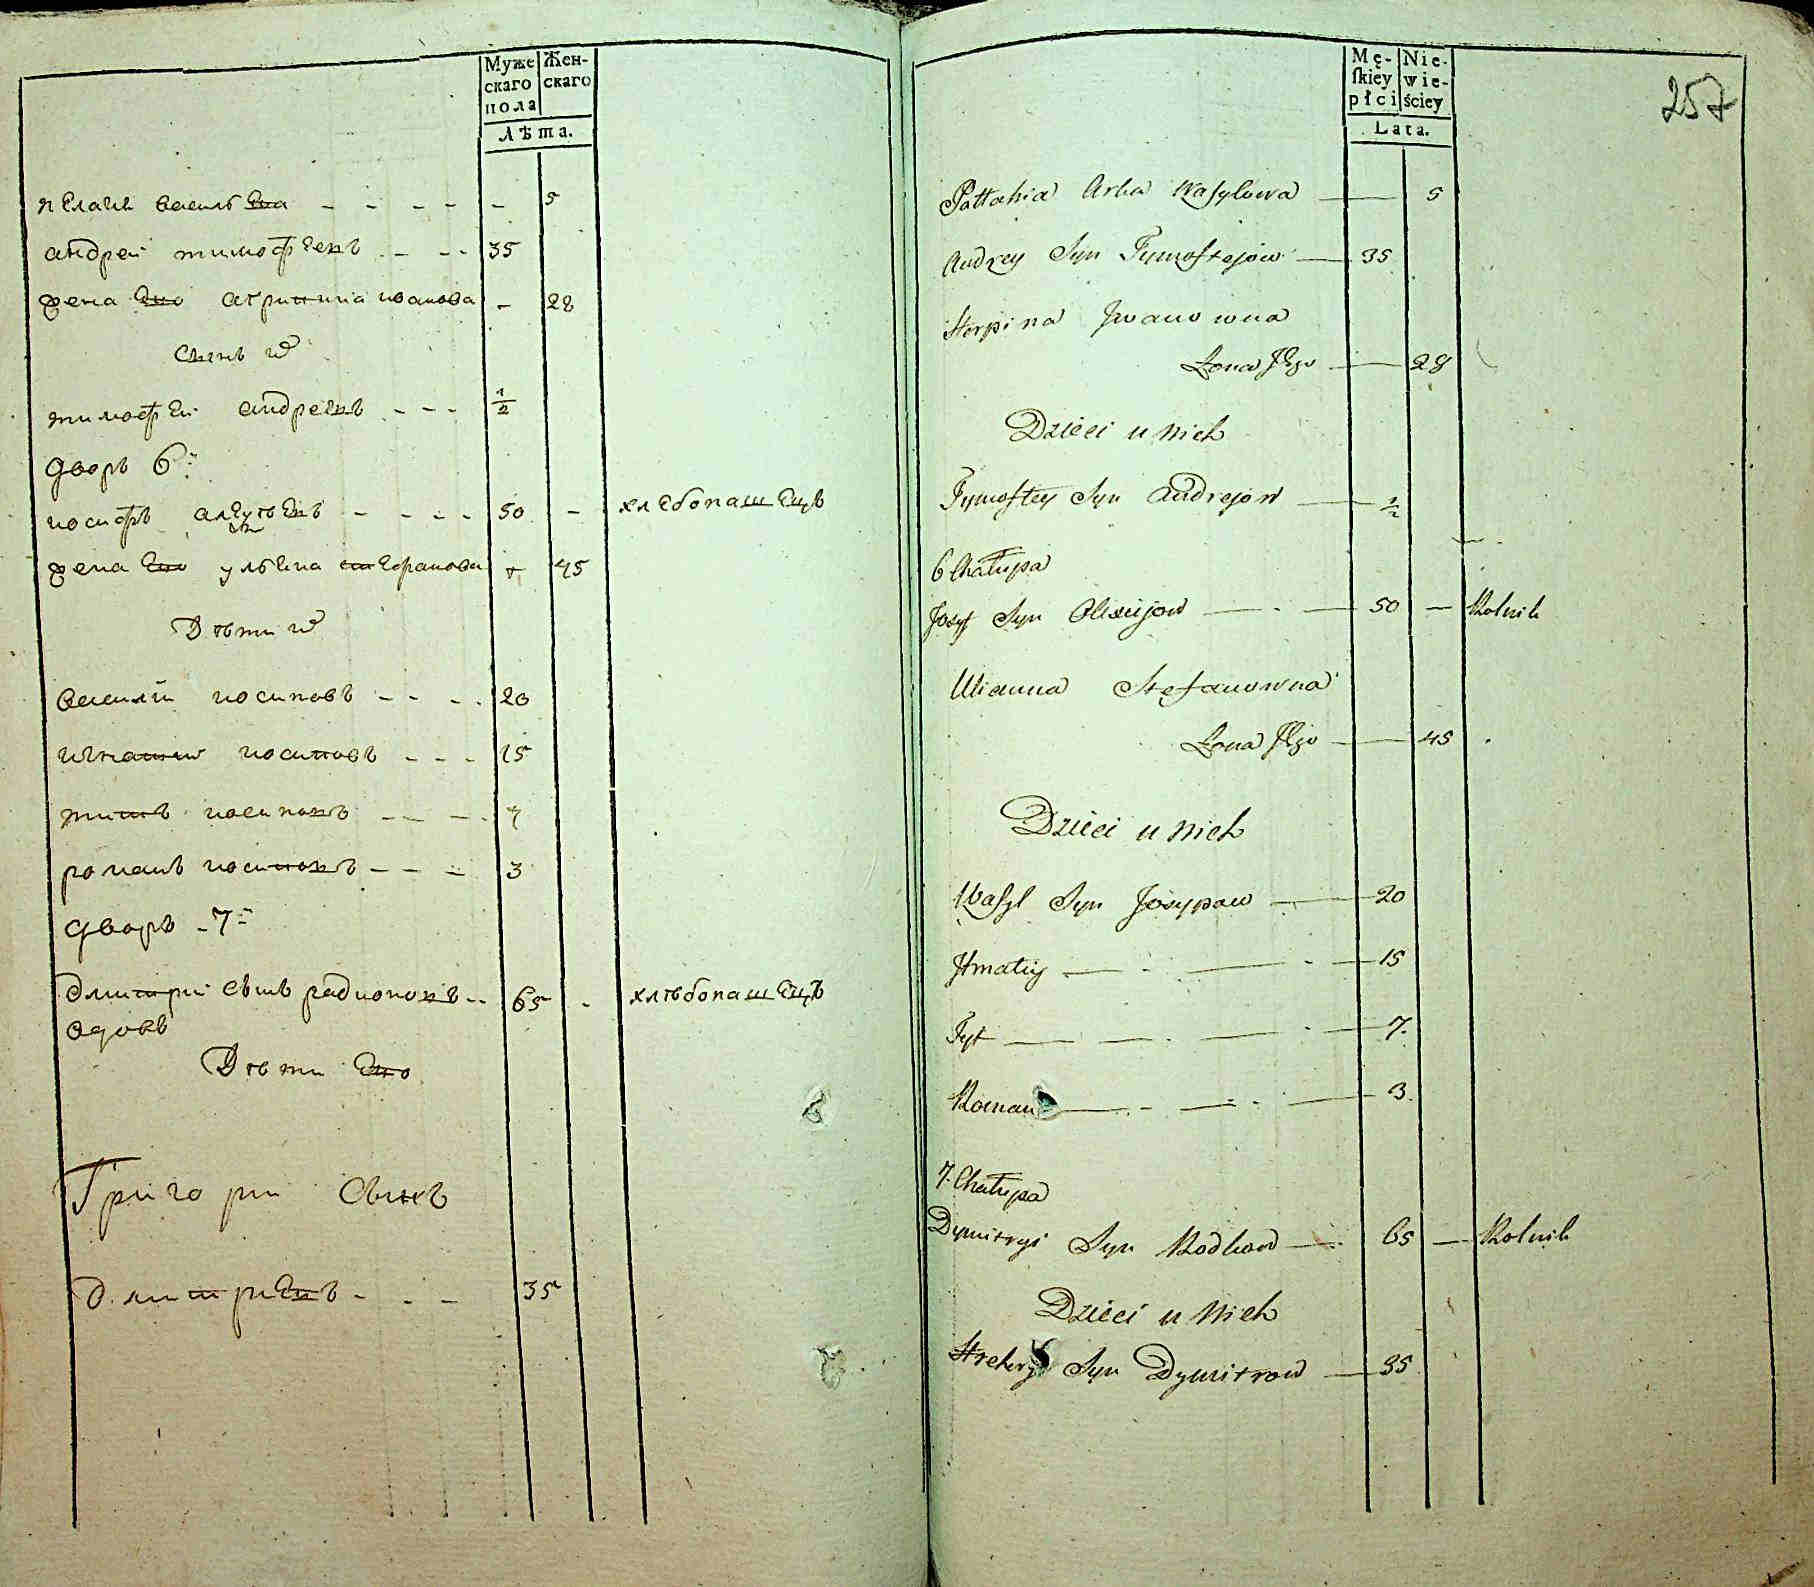 Муже
скаго
пола
Жен-
скаго
Лѣта.
пелагия василъева - - - - - 5
андрей тимофеевъ - - - 35
жена ево агрипина иванова - 28
Сынъ их
тимофей андреевъ - - - 1/2
дворъ 6й
иосифъ алексеевъ - - - - 50 - хлебопашецъ
жена ево улъяна степанова - 45
Дѣти их
василій иосиповъ - - - 20
игнатий иосиповъ - - - 15
титъ иосиповъ - - - 7
романъ иосиповъ - - - 3
дворъ - 7й
дмитрий сынъ радионовъ - - 65 - хлѣбопашецъ
вдовъ
Дѣти ево
Григорий сынъ
дмитриевъ - - - 35
Mę-
skiey
płci
Nie-
wie-
ściey
Lata.
257
Pałłahia Cırka Wasylowa — 5
Andrey Syn Tymoftejow — 35
Horpina Jwanowna
Żona Jego — 28
Dzieci u Nich
Tymoftey Syn Andrejow — 1/2
6 Chałupa
Josyf Syn Olexiejow — 50 — Rolnik
Ulianna Stefanowna
Żona Jego — 45
Dzieci u Nich
Wasyl Syn Josypow — 20
Hnatiy — 15
Tyt — 7.
Roman — 3.
7. Chałupa
Dymitryi Syn Rodkow — 65 — Rolnik
Dzieci u Nich
Hrehory Syn Dymitrow — 35